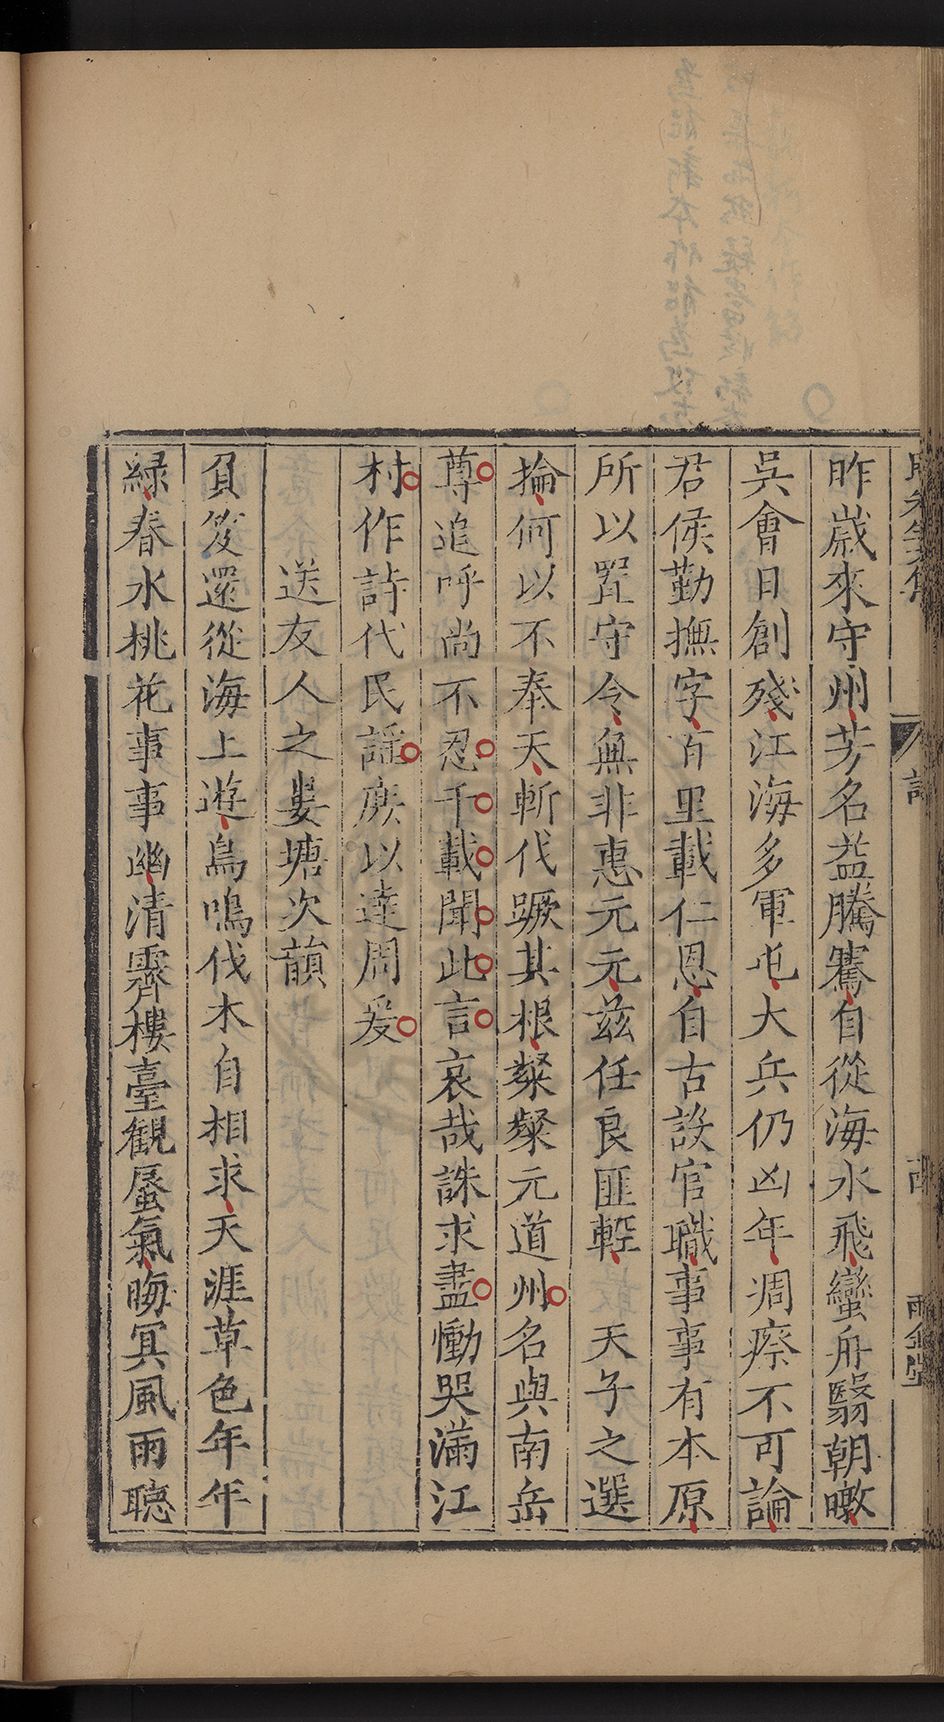 昨歲來守州芳名益騰騫自從海水飛蠻舟翳朝暾
吳會日創殘江海多軍屯大兵仍凶年凋瘵不可論
君侯勤撫字百里載仁恩自古設官職事事有本原
所以置守令無非惠元元茲任良匪輕天子之選
掄何以不奉天斬伐蹶其根粲粲元道州名與南岳
尊追呼尚不忍千載聞此言哀哉誅求盡慟哭滿江
村作詩代民謡庶以達周爰
送友人之婁塘次韻
負笈還從海上遊鳥鳴伐木自相求天涯草色年年
綠春水桃花事事幽清霽樓臺觀蜃氣晦冥風雨聽